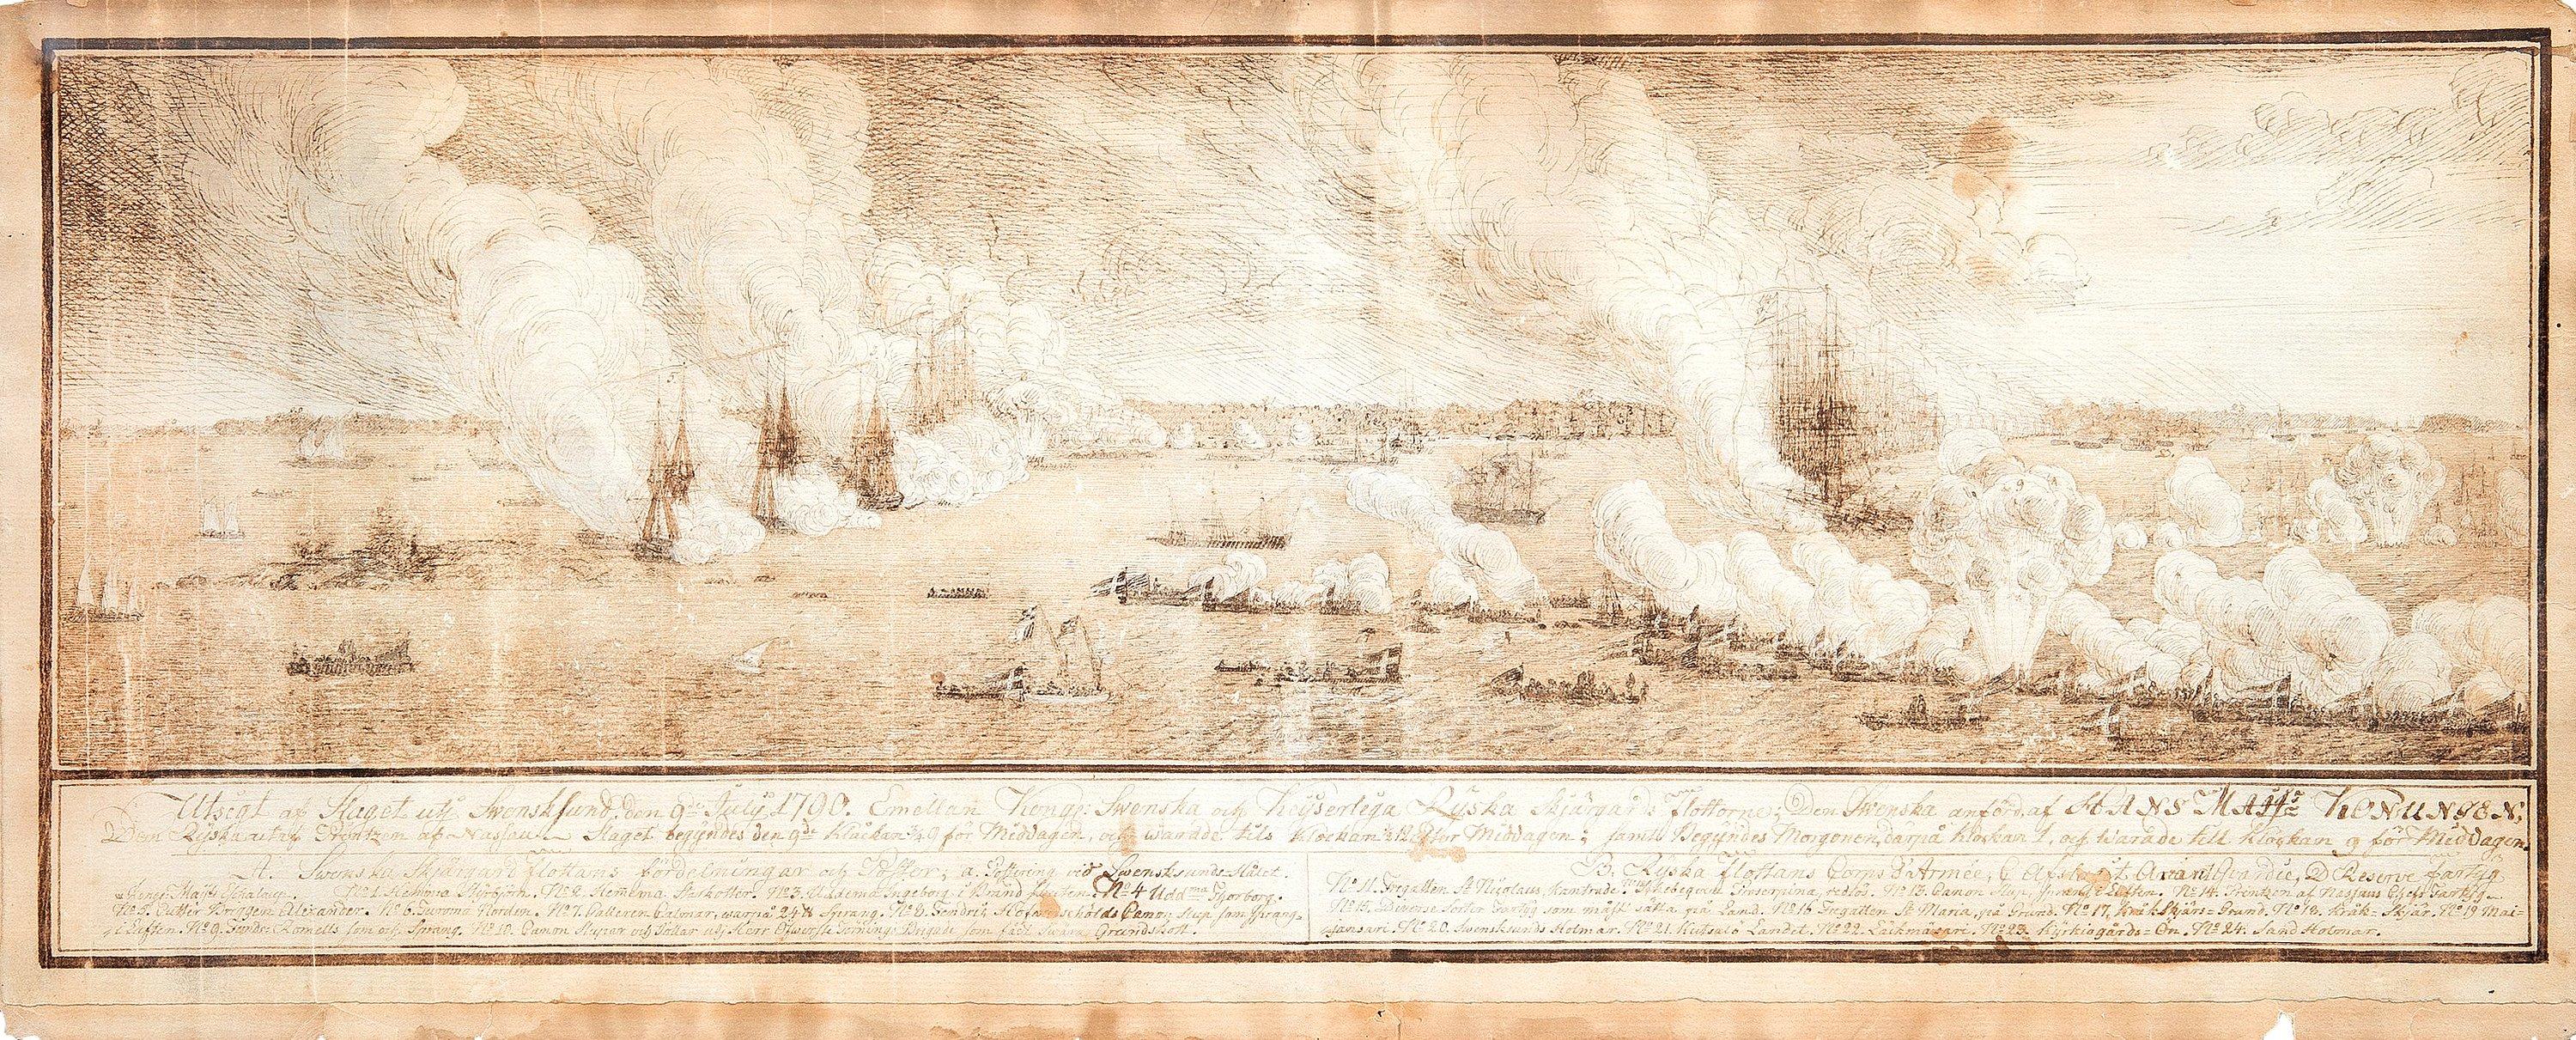 Utsigt af Slaget uti Svensksund, den 9de July 1790. Emellan Kongl: Swenska och Keyserlega Ryska Skjärgårds flottorne; Den Swenska anförd af HANS MAJt KONUNGEN,
Den Ryska utaf Printzen af Nassau. Slaget begyndes den 9de klockan ½ 9 för Middagen, och warade tils klockan ½ 12 Efter Middagen; samt Begyndes Morgonen darpå klockan 1, och warade till klockan 9 för Middagen.
A. Swenska Skjärgårds flottans fördelningar och Poster; a. Postering wid Swensksunds Hålet.
Kongl: Maj:ts Schaloup. No 1. Hemema Styrbjörn. No 2. Hemema Starkotter. No 3. Udema Ingeborg, i Brand skuten. No 4 Uddma Thorborg.
No 5. Cutter Briggen Alexander. No 6. Turoma Norden. No 7. Galleren Calmar, warpå 24 ℔ Sprang. No 8. Fendrik Canon Slup, som sprang
i Luften. No 9. Fendr: Kornells som och Sprang. No 10. Canon Slupar och Jollar utj Herr Öfwerste Törnings Brigade som fådt Swåra Grundskott.
B. Ryska flottans Corps d'Armée, C Afskedat Avant Gardie, D Reserve Fartyg.
No 11. Fregatten St Nicolaus, kantrade. No 12. Chebequen Proserpina, redlös. No 13. Canon Slup, sprang i Luften. No 14. Printzen af Nassaus Chefs Fartyg.
No 15. Diverse Sorter Fartyg som måst sätta på Land. No 16 Fregatten St Maria, på Grund. No 17, Kråk Skjärs=Grund. No 18. Kråk=Skjär. No 19 Mai=
jansari. No 20. Swensksunds Holmar. No 21. Kutsalo Landet. No 22. Laikmasari. No 23. Kyrkiogårds=Ön. No 24. Sand Holmar.